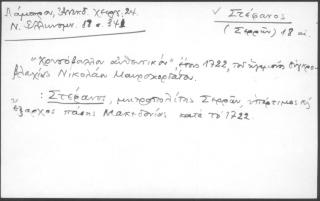 Λάμπρου, Ἀνέκδ. χειρόγρ. 24.
Ν. Ἑλληνομν. 18
Στέφανος
(Σερρῶν) 18 αἰ
"Χρυσόβουλλον αὐθεντικόν", ἔτους 1722, τοῦ ἡγεμόνος Οὐγκρο-
βλαχίας Νικολάου Μαυροκορδάτου.
: Στέφανος, μητροπολίτης Σερρῶν, ὑπέρτιμος κ
ἔξαρχος πάσης Μακεδονίας κατὰ τὸ 1722.